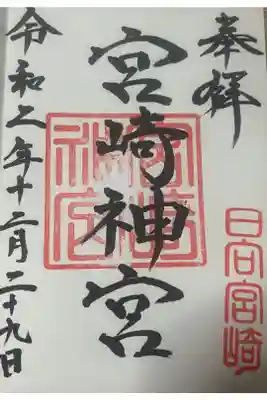 奉拝
日向宮崎
宮崎神宮
令和二年十二月二十九日